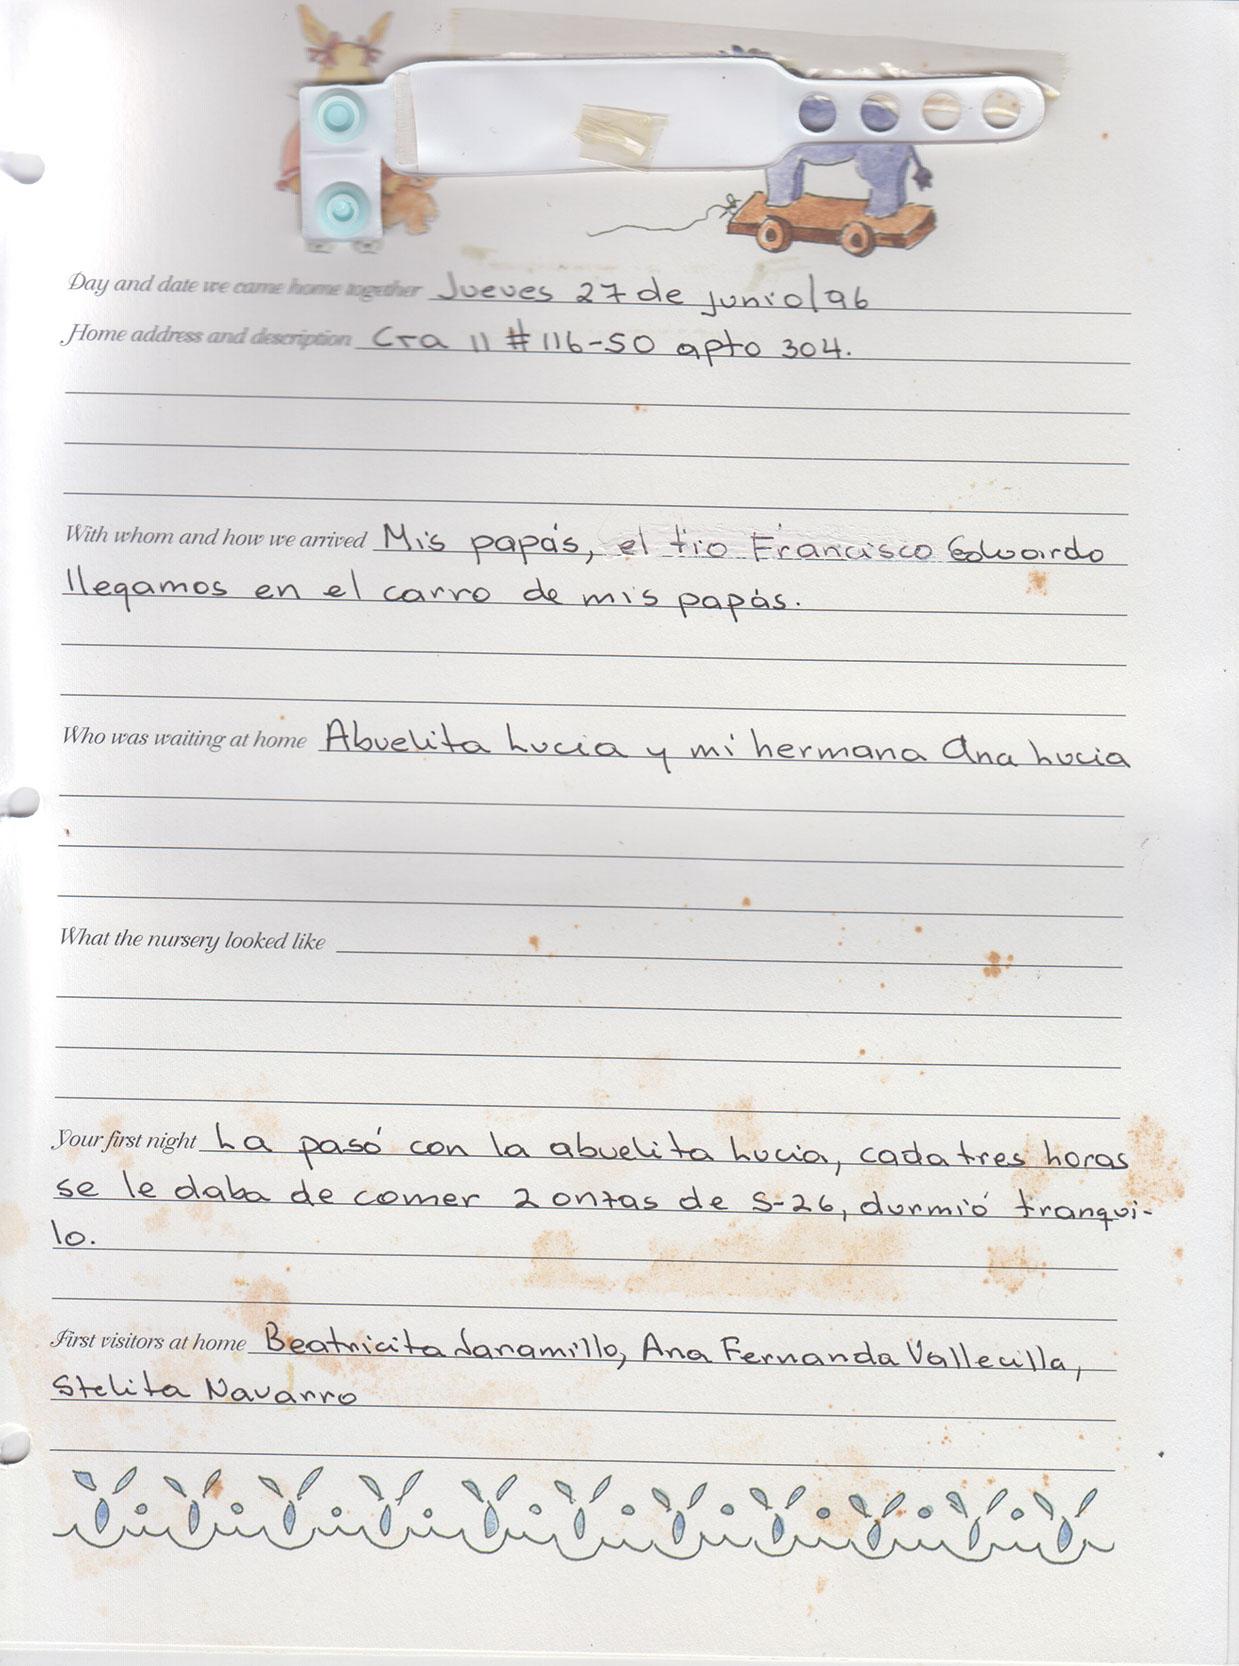 Day and date we came home together Jueves 27 de junio/96
Home address and description Cra 11 # 116-50 apto 304.
With whom and how we arrived Mis papás, el tío Francisco Eduardo
llegamos en el carro de mis papás.
Who was waiting at home Abuelita Lucia y mi hermana Ana Lucia
What the nursery looked like
Your first night La pasó con la abuelita Lucia, cada tres horas
se le daba de comer 2 onzas de S-26, durmió tranqui-
lo.
First visitors at home Beatricita Jaramillo, Ana Fernanda Vallecilla,
Stelita Navarro